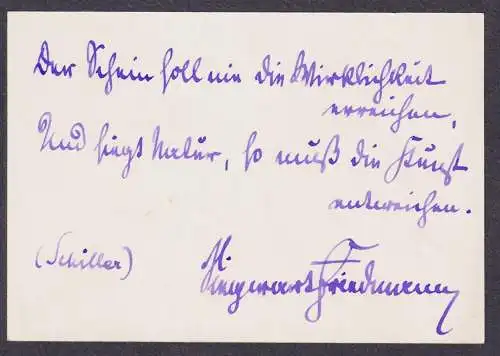 Der Schein soll nie die Wirklichkeit
erreichen,
Und siegt Natur, so muß die Kunst
entweichen.
(Schiller)
Siegwart Friedmann